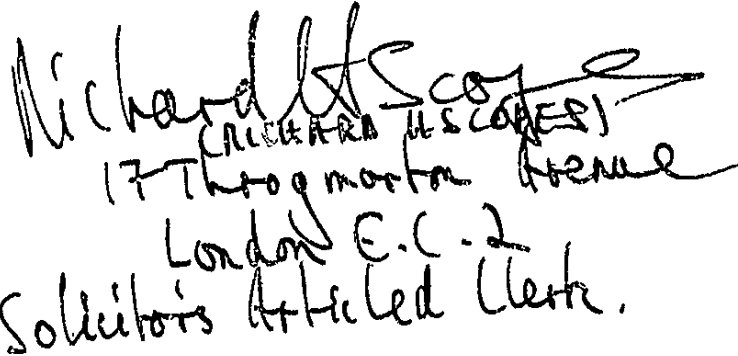 Richard H Scopes
(RICHARD H SCOPES)
17 Throgmorton Avenue
London E.C.2
Solicitor's Articled Clerk.